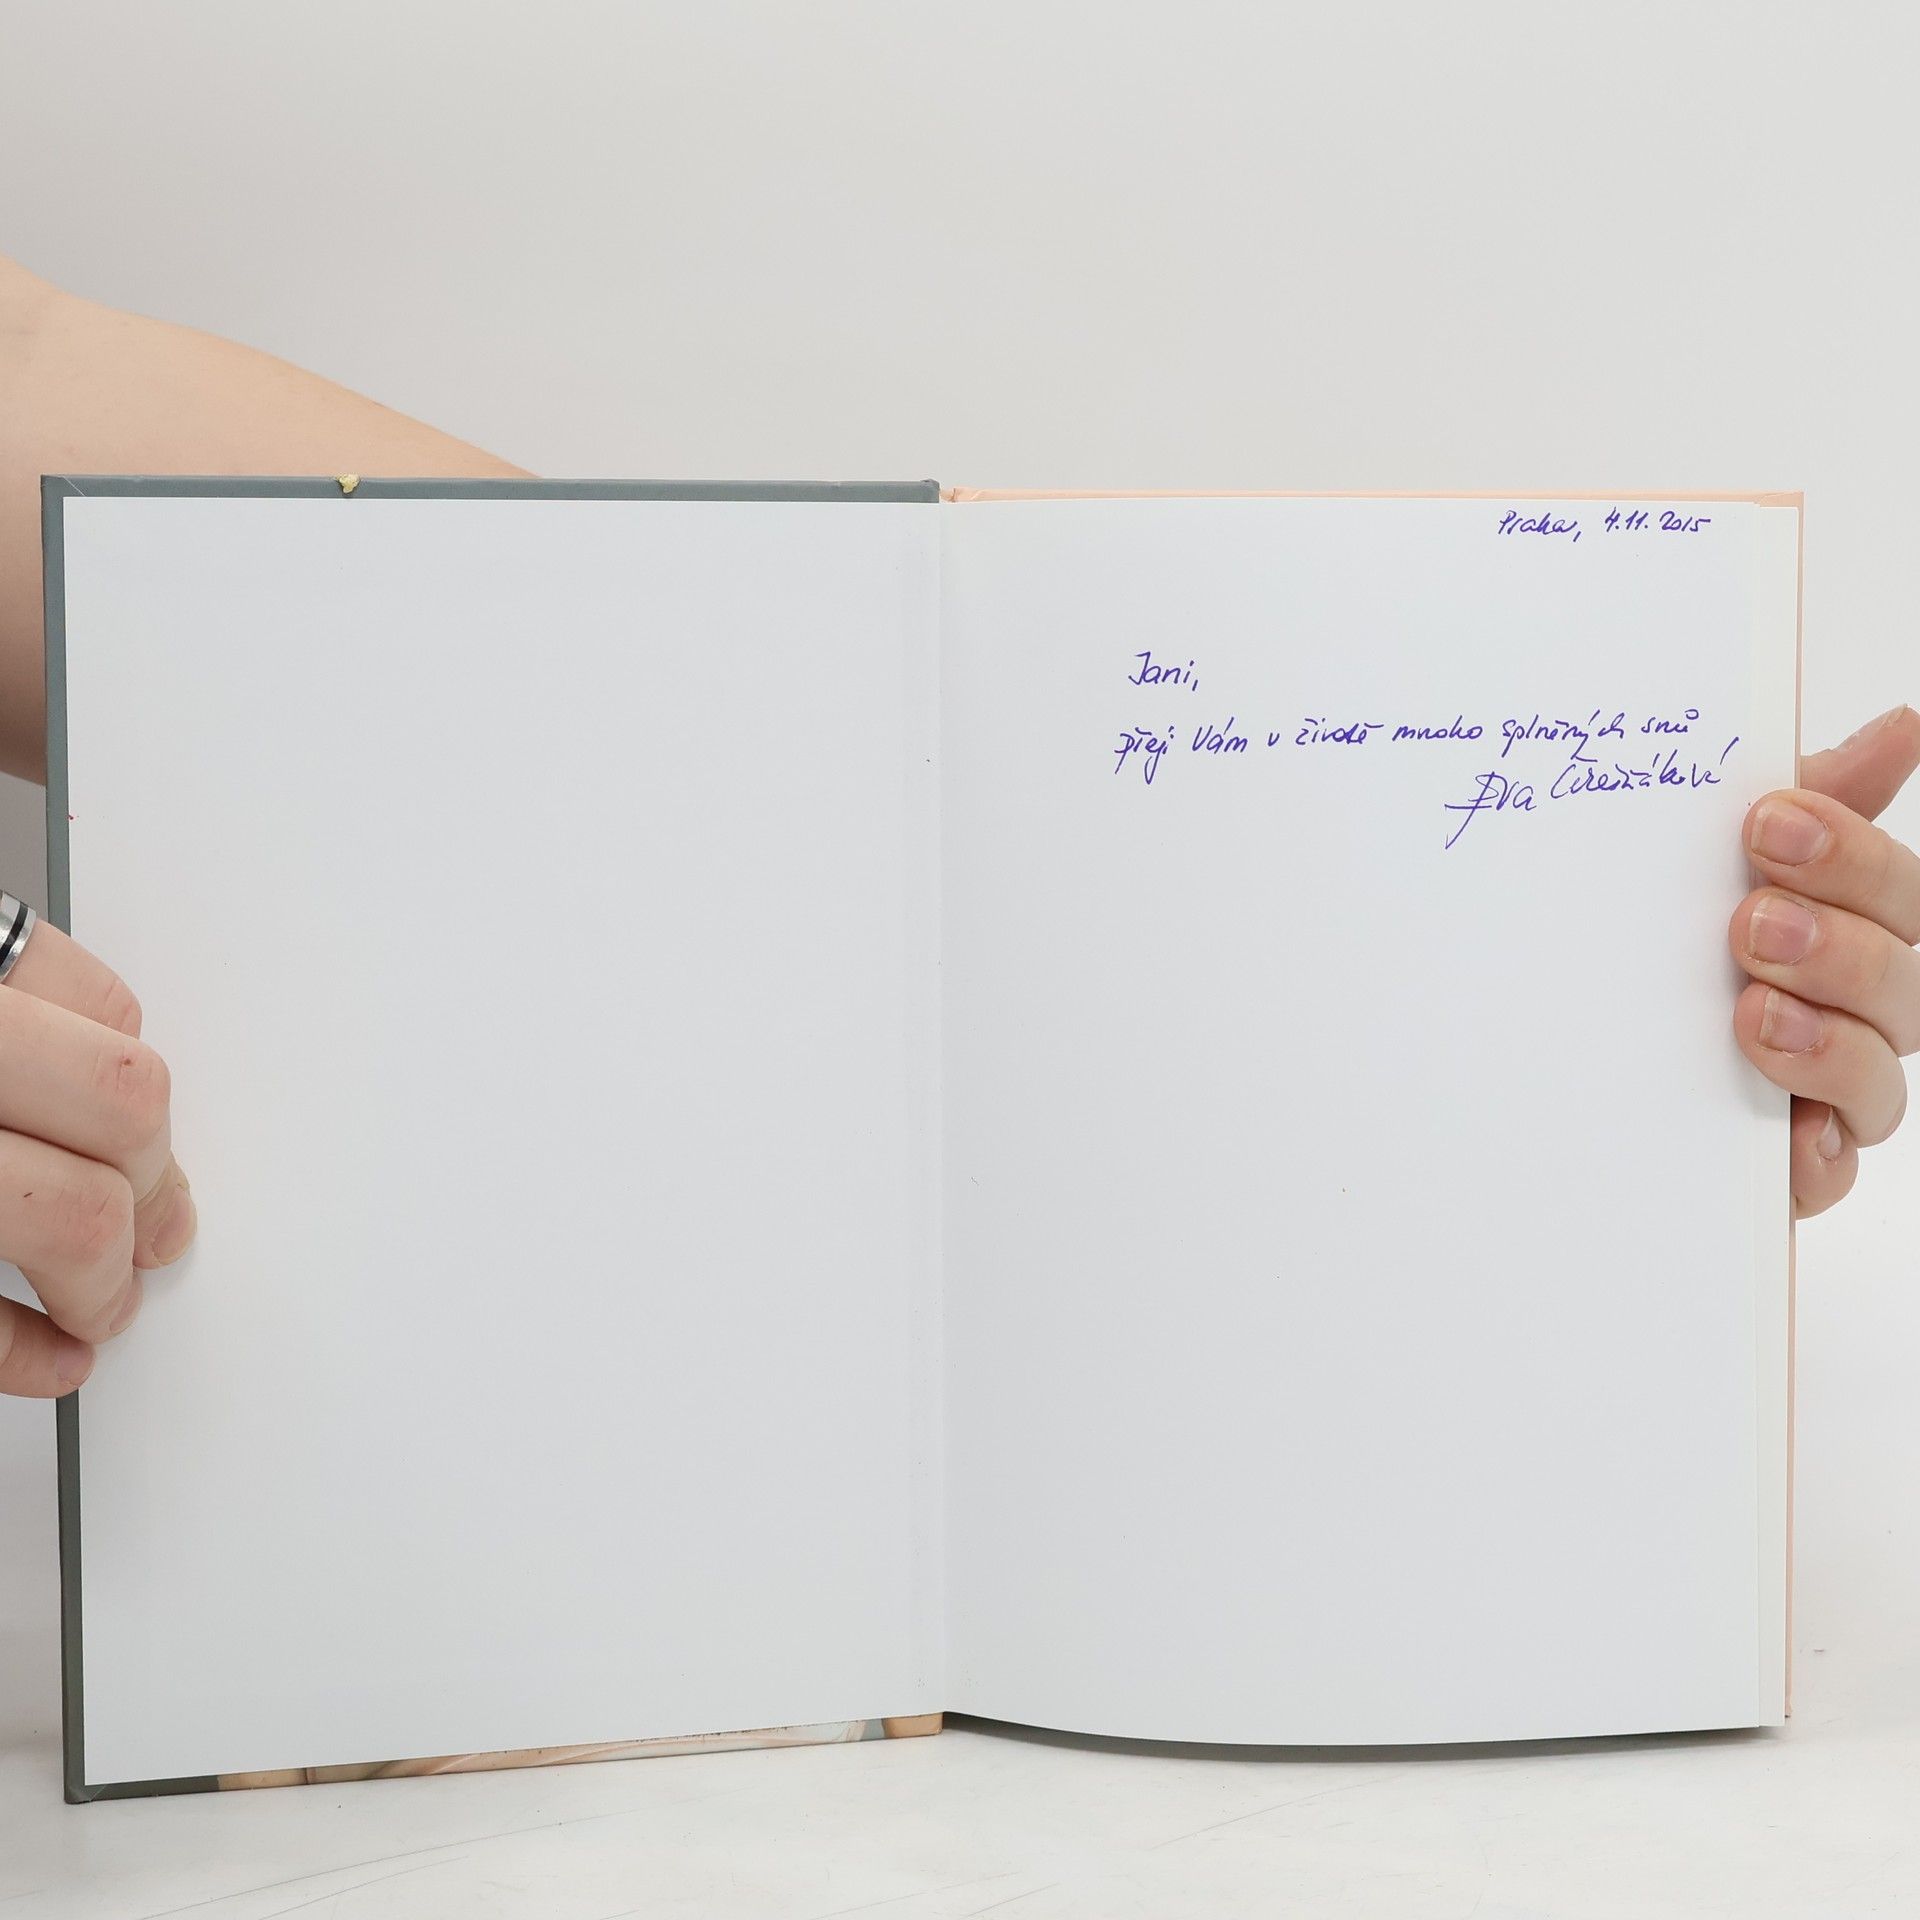 Praha, 4.11.2015
Jani,
přeji Vám v životě mnoho splněných snů
Eva